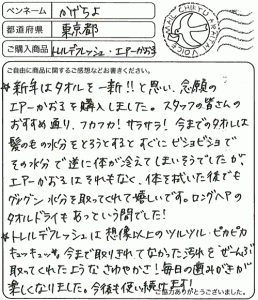 ペンネーム かがちよ
都道府県 東京都
ご購入商品 トレルデフレッシュ・エアーかおる
ご自由に商品に関するご感想などお書きください。
★新年はタオルを一新!!と思い、念願の
エアーかおるを購入しました。スタッフの皆さんの
おすすめ通り、フカフカ!サラサラ!今までのタオルは
髪のもの水分をとろうとするとすぐにビショビショで
その水分で逆に体が冷えてしまいそうでしたが、
エアーかおるはそれもなく、体を拭いた後でも
グングン水分を取ってくれて嬉しいです。ロングヘアの
タオルドライもあっという間でした!
★トレルデフレッシュは想像以上のツルツル・ピカピカ
キュッキュッ☆今まで取りきれてなかった汚れをぜーんぶ
取ってくれたようなさわやかさ!毎日の歯みがきが
楽しくなりました。今後も使い続けます!
ご協力ありがとうございました。